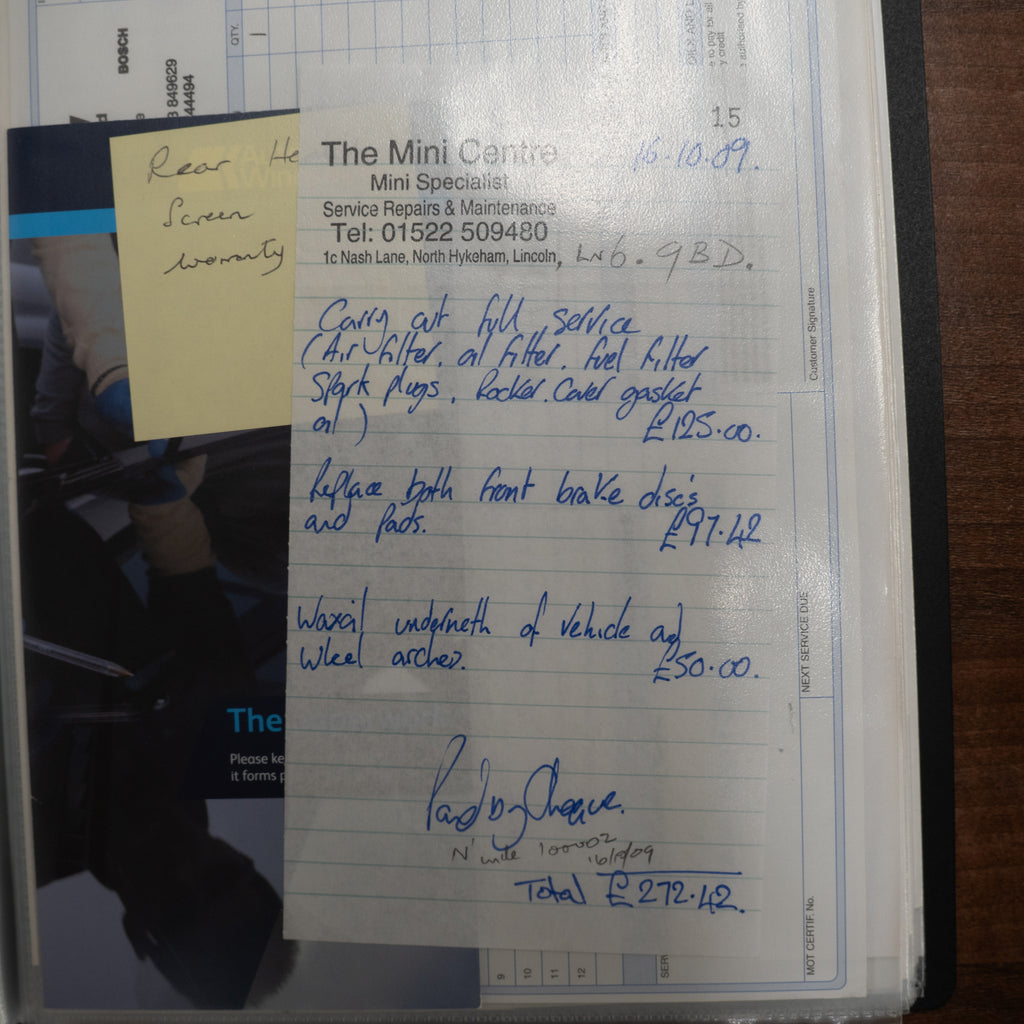 BOSCH
849629
44494
QTY.
15
16.10.09.
Rear He
Screen
warranty
The Mini Centre
Mini Specialist
Service Repairs & Maintenance
Tel: 01522 509480
1c Nash Lane, North Hykeham, Lincoln, LN6. 9BD.
Carry out full service
(Air filter. oil filter. fuel filter
Spark plugs, Rocker. Cover gasket
oil)
£125.00.
Replace both front brake disc's
and Pads.
£97.42
Waxoil underneth of vehicle and
wheel arches.
£50.00.
Paid by Cheque.
100002
16/10/09
Total £272.42.
The
Please ke
it forms p
Customer Signature
NEXT SERVICE DUE
MOT CERTIF. No.
9
10
11
12
SER